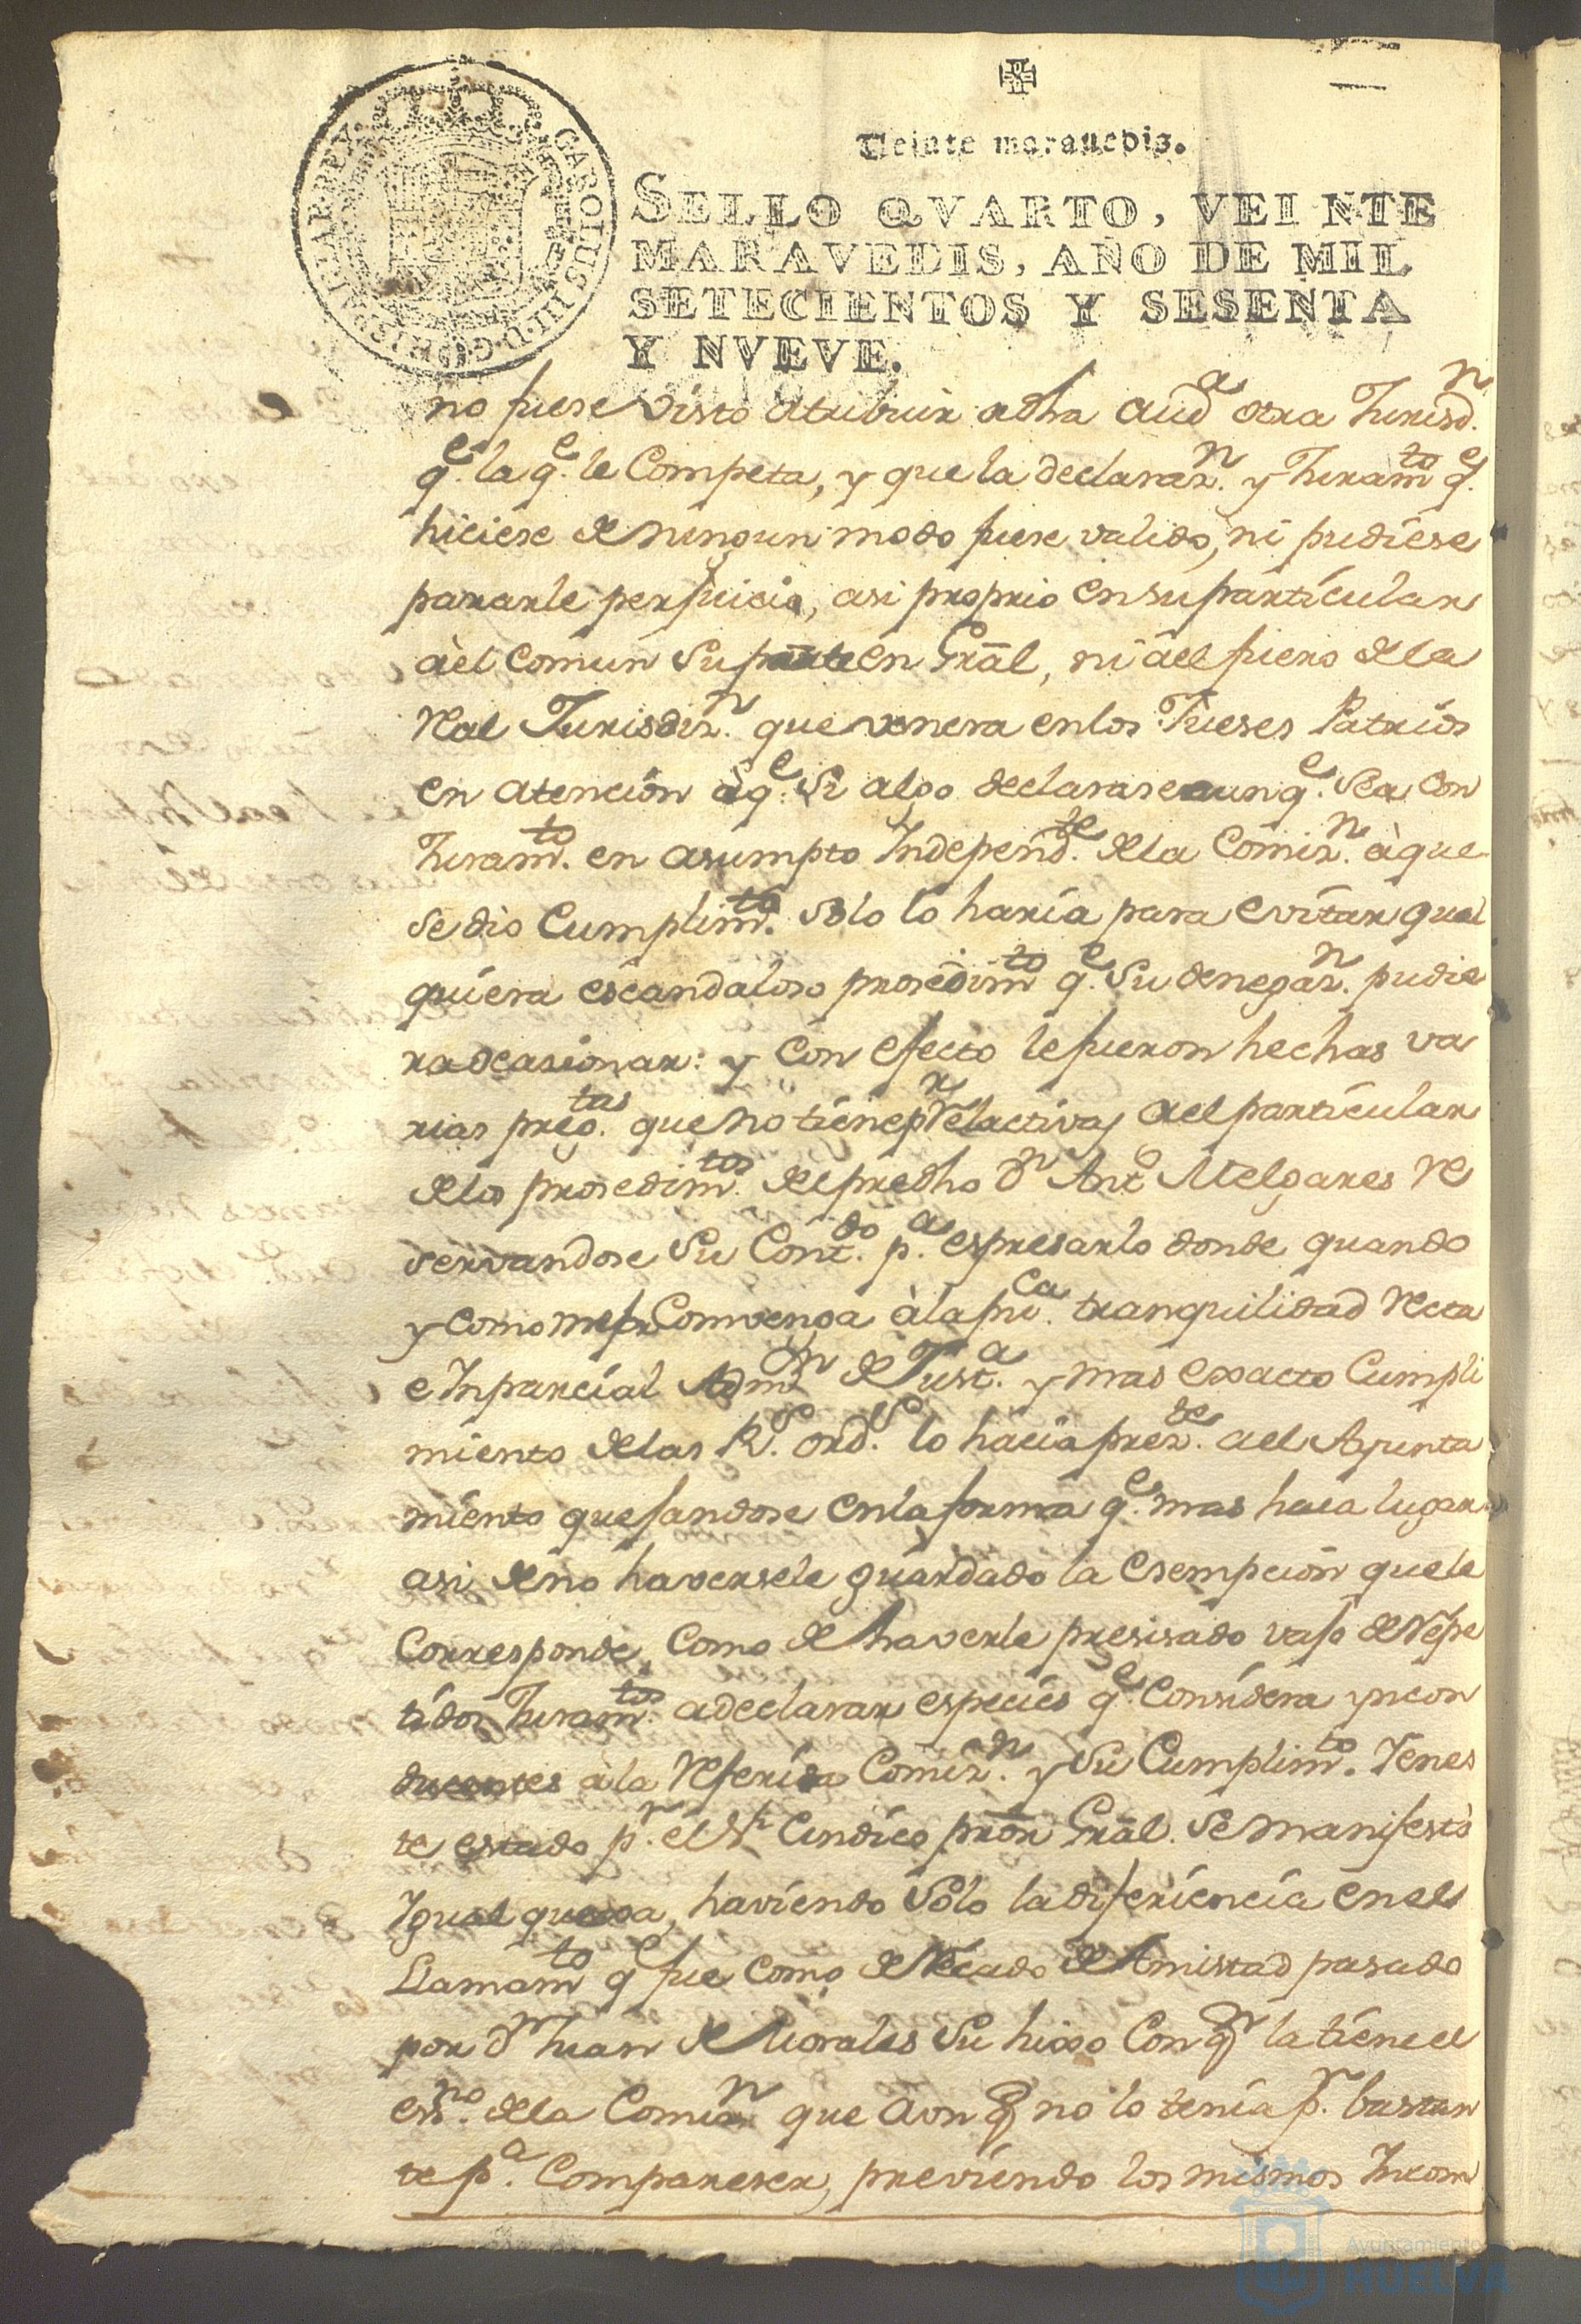 Veinte maravedis.
SELLO QVARTO, VEINTE
MARAVEDIS, AÑO DE MIL
SETECIENTOS Y SESENTA
Y NVEVE.
CAROLUS III D G HISPANIAR REX
no fuese visto atribuir a dha Aud.ª otra Jurisd.n
q.e la q.e le Competa, y que la declaraz.n y Juram.to q.e
hiciese de ningun modo fuese valido, ni pudiese
pararle perjuicio, asi proprio en su particular
àel Comun su parte en Grāl, ni àel fuero de la
Real Jurisdiz.n que venera en los Jueses Patrios
en atención à q.e si algo declarase aunq.e sea con
Juram.to en asumpto Independ.te de la Comiz.n à que
se dio Cumplim.to solo lo haria para evitar qual
quiera escandaloso prosedim.to q.e su denegaz.n pudie
ra ocasionar: y Con efecto le fueron hechas va
rias preg.tas que no tienen Relactiva, àel particular
de los prosedim.tos del predho D.n Ant.o Melgares Re
servandose su Cont.do p.a espresarlo donde quando
y como mejor Convenga à la pu.ca tranquilidad Recta
e Inparcial Adm.on de Just.a y mas exacto Cumpli
miento de las R.s ord.s lo hacia prez.te àel Ayunta
miento quejandose en la forma q.e mas haia lugar
asi de no haversele guardado la Esempcion que le
Corresponde, Como de haverle presisado vajo de Repe
tidos Juram.tos a declarar especies q.e Considera yncon
ducentes à la Referida Comiz.n y su Cumplim.to. Y en es
te estado p.r el S.r Cindico prōr Grāl. se manifestò
Igual quexa, haviendo solo la diferiencia en el
Llamam.to q.e fue como de Recado de Amistad pasado
por D.n Juan de Morales su hixo Con q.n la tiene el
ess.no de la Comiz.n que aon q.e no lo tenia p.r bastan
te p.a Compareser, previendo los mismos Incom
Ayuntamiento
HUELVA